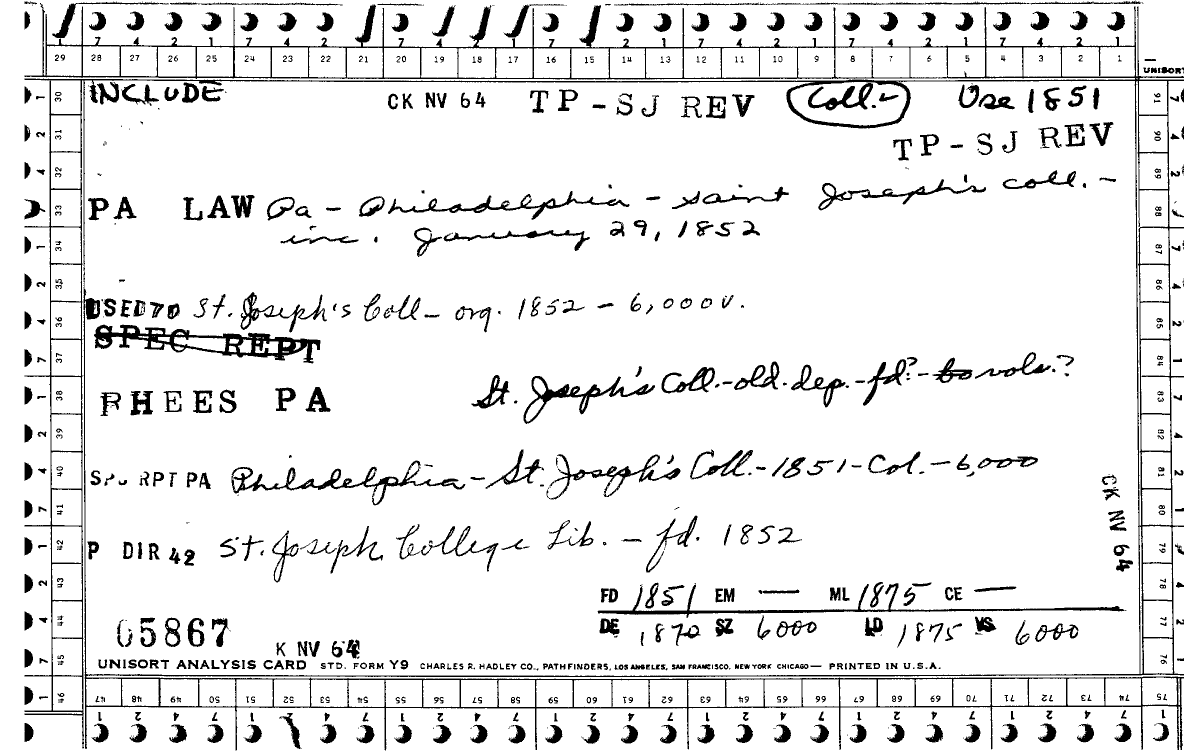 7 4 2 1 7 4 2 1 7 4 2 1 7 4 2 1 7 4 2 1 7 4 2 1 7 4 2 1
29 28 27 26 25 24 23 22 21 20 19 18 17 16 15 14 13 12 11 10 9 8 7 6 5 4 3 2 1
UNISORT
INCLUDE CK NV 64 TP-SJ REV Coll.- Use 1851
TP-SJ REV
PA LAW Pa - Philadelphia - Saint Joseph's coll. -
inc. January 29, 1852
USED 70 St. Joseph's Coll - org. 1852 - 6,000 v.
SPEC REPT
RHEES PA St. Joseph's Coll.-old.dep.-fd?-60 vols.?
SPC RPT PA Philadelphia - St. Joseph's Coll.-1851-Col.-6,000
CK NV 64
P DIR 42 St. Joseph College Lib. - fd. 1852
FD 1851 EM — ML 1875 CE —
DE 1870 SZ 6000 LD 1875 VS 6000
05867 K NV 64
UNISORT ANALYSIS CARD STD. FORM Y9 CHARLES R. HADLEY CO., PATHFINDERS, LOS ANGELES, SAN FRANCISCO, NEW YORK CHICAGO — PRINTED IN U.S.A.
30 31 32 33 34 35 36 37 38 39 40 41 42 43 44 45 46
91 90 89 88 87 86 85 84 83 82 81 80 79 78 77 76 75
47 48 49 50 51 52 53 54 55 56 57 58 59 60 61 62 63 64 65 66 67 68 69 70 71 72 73 74
1 2 4 7 1 2 4 7 1 2 4 7 1 2 4 7 1 2 4 7 1 2 4 7 1 2 4 7